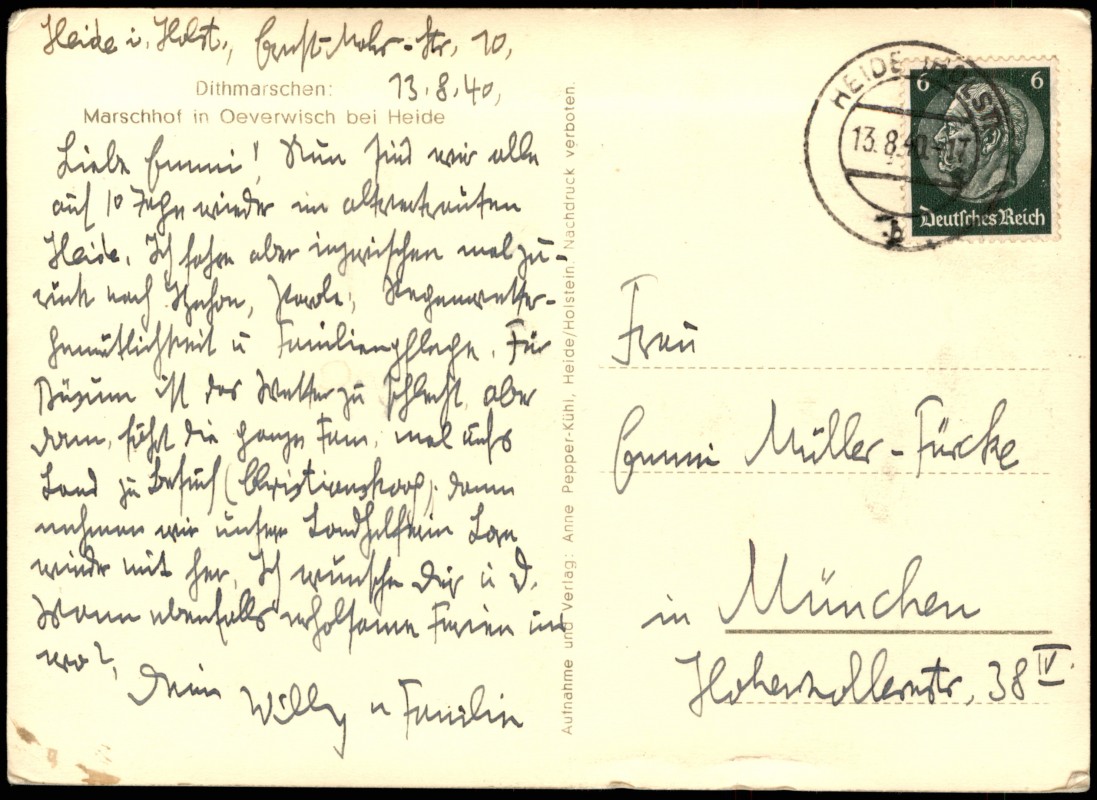 Heide i. Holst., Ernst-Mohr-Str. 10,
13.8.40,
Dithmarschen:
Marschhof in Oeverwisch bei Heide
Liebe Emmi! Nun sind wir alle
auf 10 Tage wieder im altvertrauten
Heide. Ich fahre aber inzwischen mal zu-
rück nach Itzehoe, Parole: Regenwetter-
gemütlichkeit u Familienpflege. Für
Büsum ist das Wetter zu schlecht, aber
dann fährt die ganze Fam. mal aufs
Land zu Besuch (Christianskoog); dann
nehmen wir unsere Landhelferin
wieder mit her. Ich wünsche Dir u D.
Mann ebenfalls erholsame Ferien in
wo?,
Dein Willy u Familie
Aufnahme und Verlag: Anne Pepper-Kühl, Heide/Holstein. Nachdruck verboten.
HEIDE (HOLST)
13.8.40.-17
b
6 6
Deutsches Reich
Frau
Emmi Müller-Fürcke
in München
Hohenzollernstr. 38 IV.